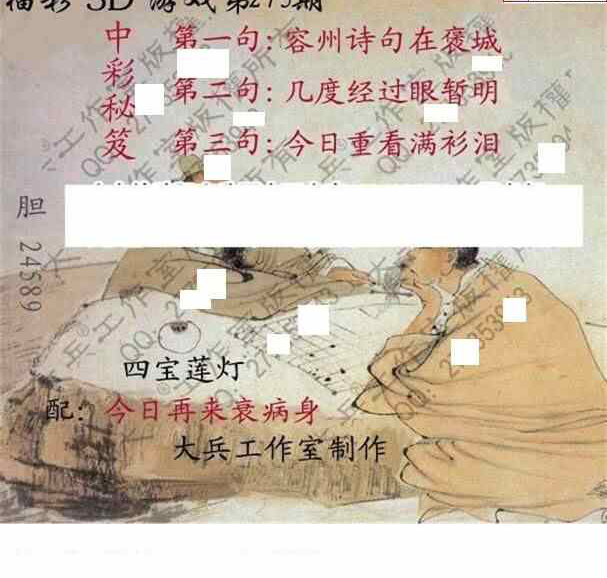 福彩3D 游戏第275期
中彩秘笈
第一句：容州诗句在褒城
第二句：几度经过眼暂明
第三句：今日重看满衫泪
胆 24589
四宝莲灯
配：今日再来衰病身
大兵工作室制作